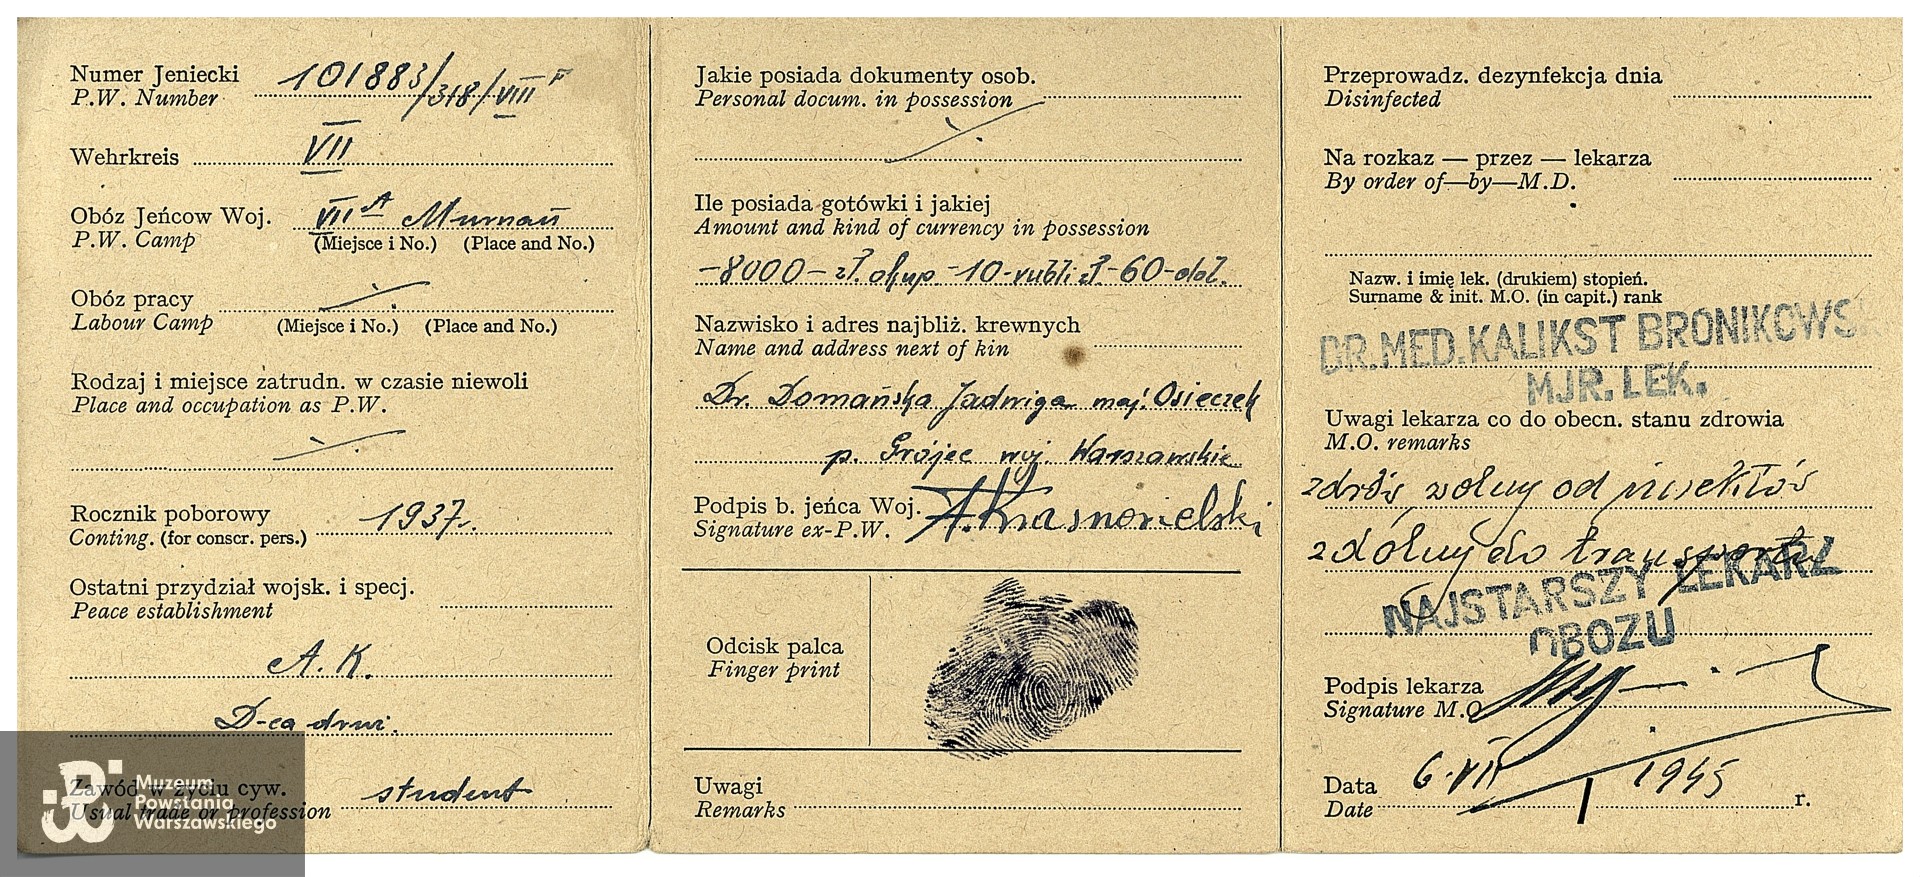 Numer Jeniecki 101883/318/VIII F
P.W. Number
Wehrkreis VII
Obóz Jeńcow Woj. VII A Murnau
P.W. Camp (Miejsce i No.) (Place and No.)
Obóz pracy
Labour Camp (Miejsce i No.) (Place and No.)
Rodzaj i miejsce zatrudn. w czasie niewoli
Place and occupation as P.W.
Rocznik poborowy 1937.
Conting. (for conscr. pers.)
Ostatni przydział wojsk. i specj.
Peace establishment
A. K.
D-ca druż.
Zawód w życiu cyw. student
Usual trade or profession
Muzeum
Powstania
Warszawskiego
Jakie posiada dokumenty osob.
Personal docum. in possession
Ile posiada gotówki i jakiej
Amount and kind of currency in possession
-8000- zł. okup. -10- rubli zł. -60- dol.
Nazwisko i adres najbliż. krewnych
Name and address next of kin
Dr. Domańska Jadwiga maj. Osieczek
p. Grójec woj. Warszawskie
Podpis b. jeńca Woj. A. Krasnosielski
Signature ex-P.W.
Odcisk palca
Finger print
Uwagi
Remarks
Przeprowadz. dezynfekcja dnia
Disinfected
Na rozkaz — przez — lekarza
By order of—by—M.D.
Nazw. i imię lek. (drukiem) stopień.
Surname & init. M.O. (in capit.) rank
DR. MED. KALIKST BRONIKOWS
MJR. LEK.
Uwagi lekarza co do obecn. stanu zdrowia
M.O. remarks
zdrów wolny od insektów
zdolny do transportu
NAJSTARSZY LEKARZ
OBOZU
Podpis lekarza
Signature M.O.
Data 6. VII 1945 r.
Date